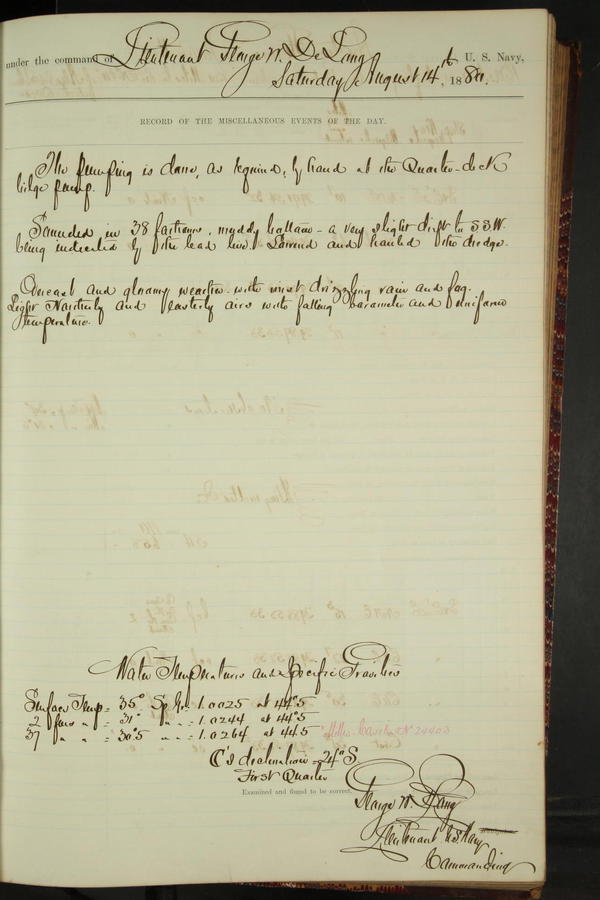 under the command of Lieutenant George W. De Long, U. S. Navy,
Saturday August 14th, 1880.
RECORD OF THE MISCELLANEOUS EVENTS OF THE DAY.
The pumping is done, as required, by hand at the Quarter-deck
bilge pump.
Sounded in 38 fathoms, muddy bottom - a very slight drift to SSW.
being indicated by the lead line. Lowered and hauled the dredge.
Overcast and gloomy weather with mist drizzling rain and fog.
Light Northerly and Easterly airs with falling barometer and uniform
temperature.
Water Temperatures and Specific Gravities
Surface Temp = 35° Sp. Gr. = 1.0025 at 44°5
2 fms " = 31° " " = 1.0244 at 44°5
37 " " = 30°5 " " = 1.0264 at 44°5
C's declination = 24° S.
First Quarter
Examined and found to be correct.
George W. De Long
Lieutenant U.S. Navy
Commanding